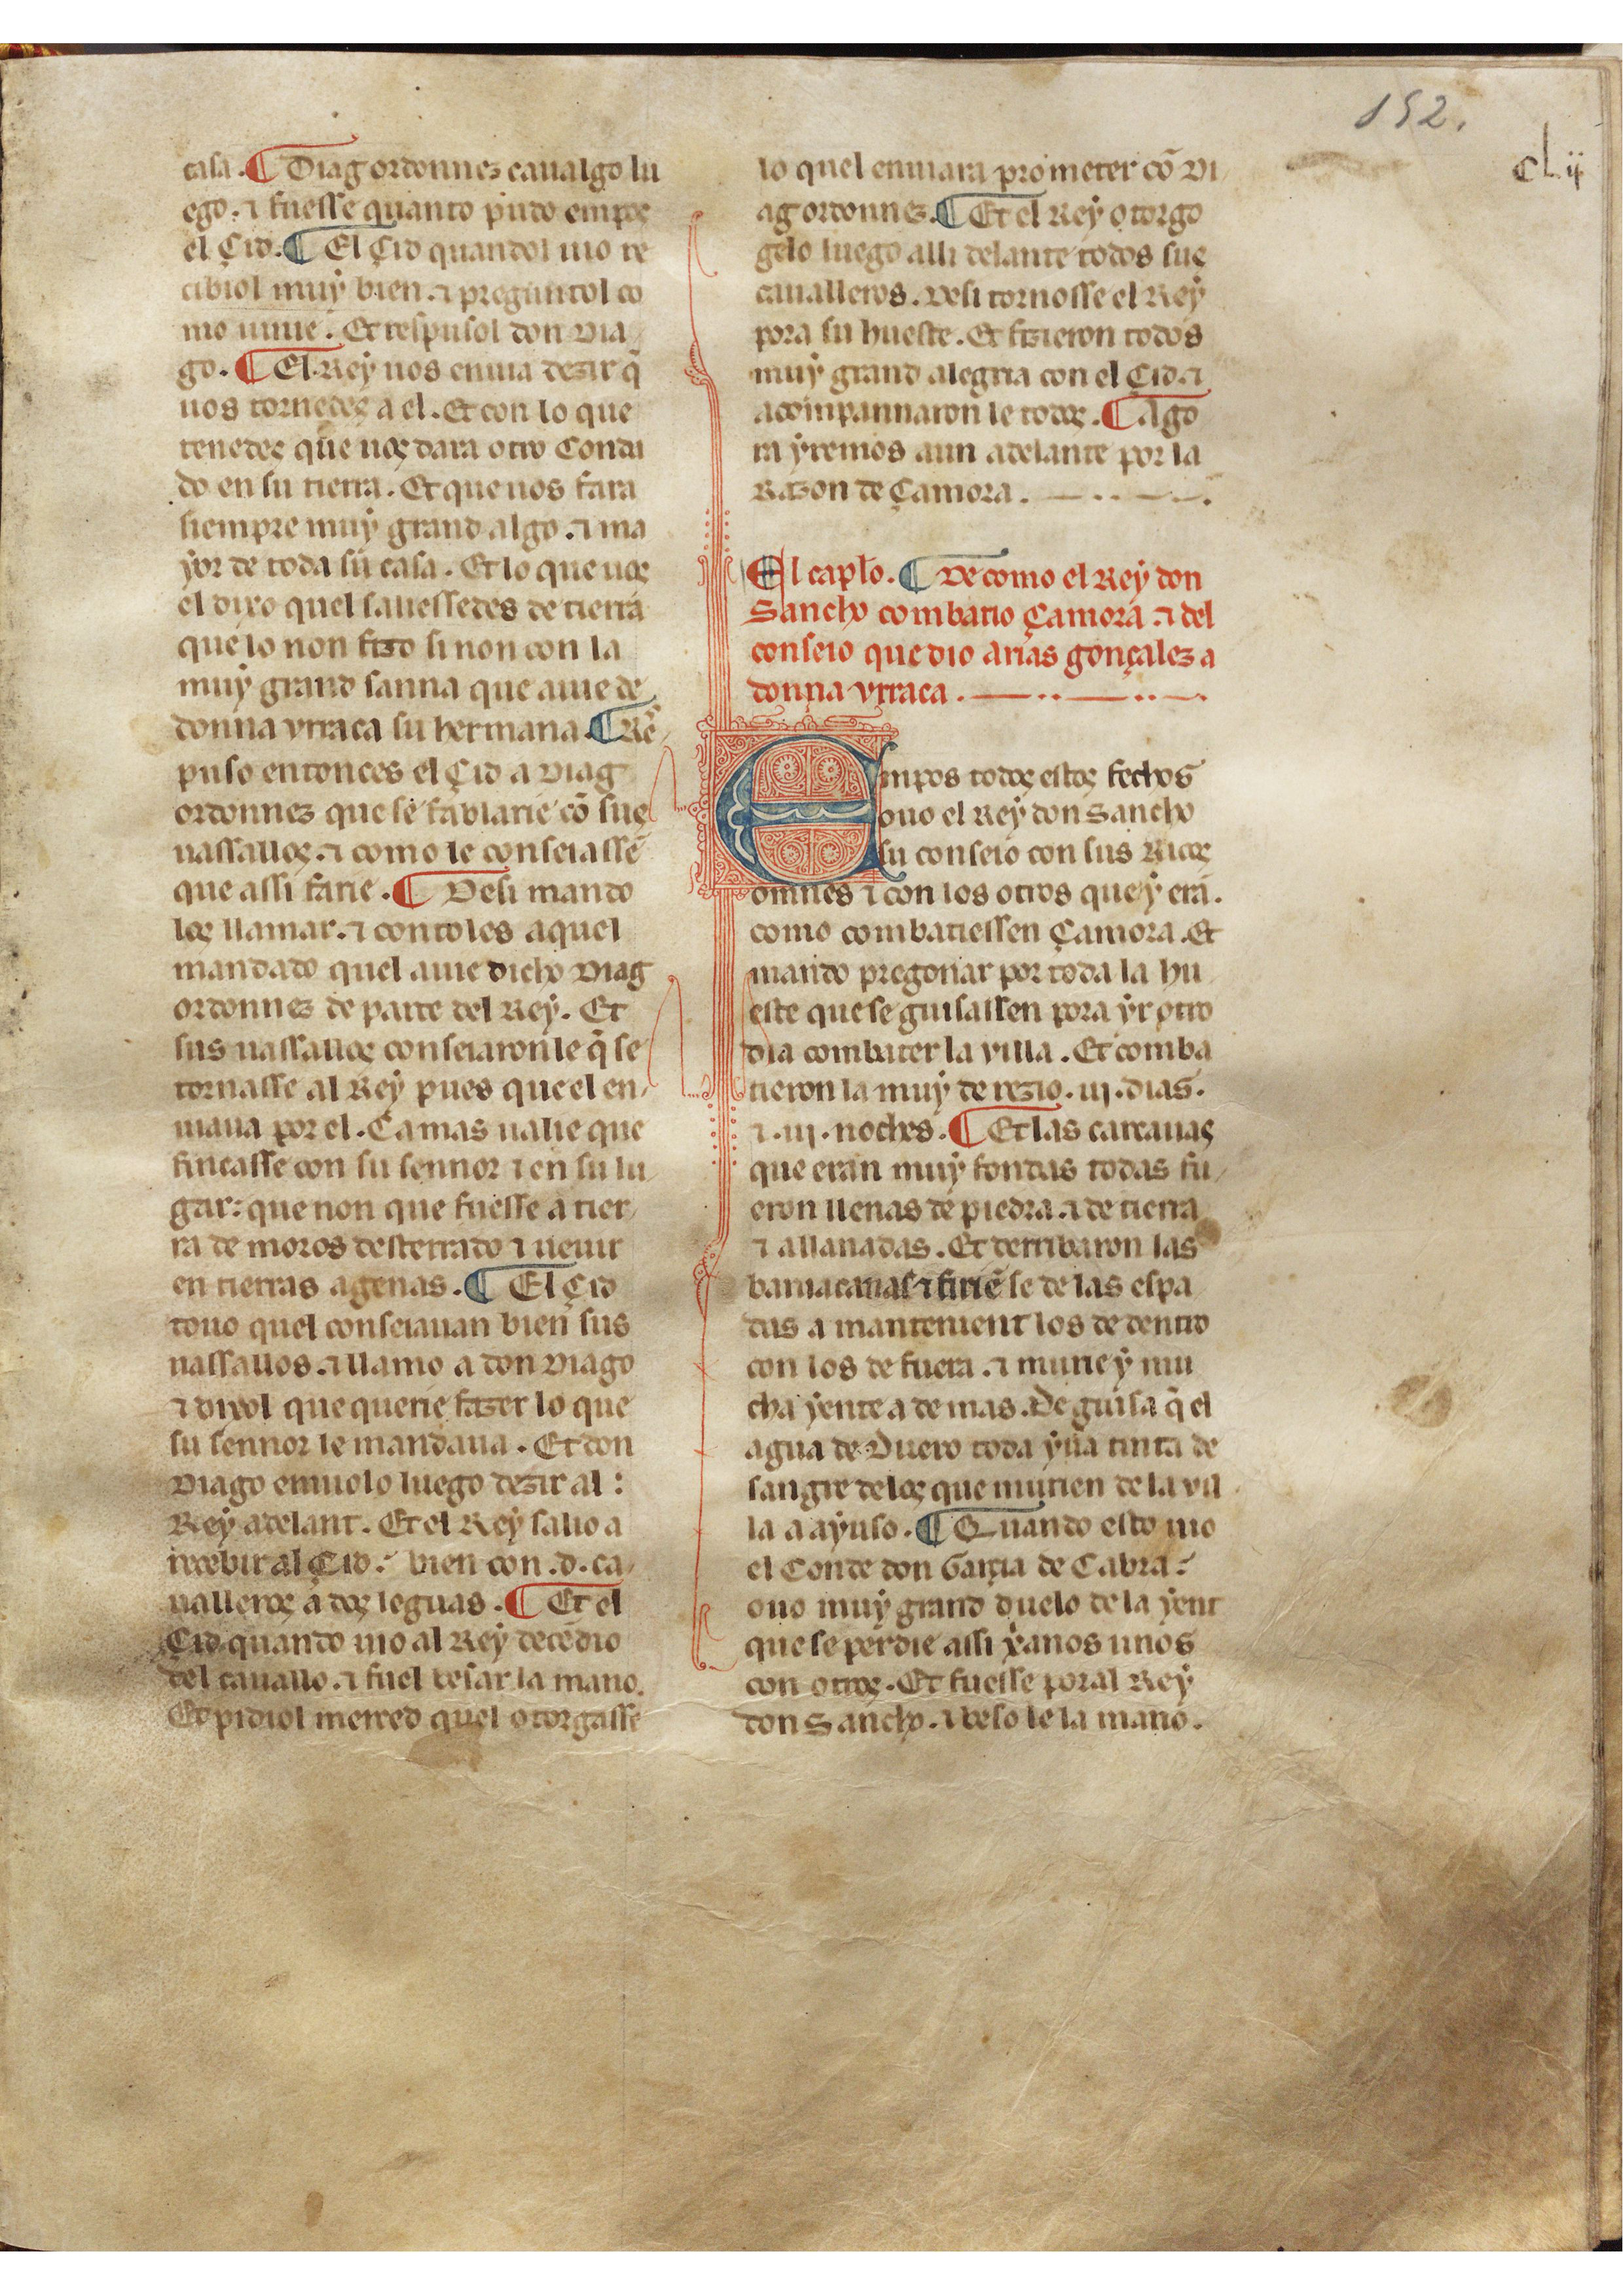 152.
clij
casa. ¶ Diag ordonnez caualgo lu
ego. ⁊ fuesse quanto pudo empos
el Çid. ¶ El Çid quandol uio re
cibiol muy bien. ⁊ preguntol co
mo uinie. Et respusol don Dia
go. ¶ El Rey uos enuia dezir q̃
uos tornedes a el. Et con lo que
tenedes que uos dara otro Conda
do en su tierra. Et que uos fara
siempre muy grand algo. ⁊ ma
yor de toda su casa. Et lo que uos
el dixo quel saliessedes de tierra
que lo non fizo si non con la
muy grand sanna que auie de
donna vrraca su hermana. ¶ Rẽ
puso entonces el Çid a Diag
ordonnez que se fablarie cõ sus
uassallos. ⁊ como le conseiassẽ
que assi farie. ¶ Desi mando
los llamar. ⁊ contoles aquel
mandado quel auie dicho Diag
ordonnez de parte del Rey. Et
sus uassallos conseiaron le q̃ se
tornasse al Rey pues que el en
uiaua por el. Ca mas ualie que
fincasse con su sennor ⁊ en su lu
gar: que non que fuesse a tier
ra de moros desterrado ⁊ ueuir
en tierras agenas. ¶ El Çid
touo quel conseiauan bien sus
uassallos. ⁊ llamo a don Diago
⁊ dixol que querie fazer lo que
su sennor le mandaua. Et don
Diago enuiolo luego dezir al:
Rey adelant. Et el Rey salio a
recebir al Çid: bien con .d. ca
ualleros a dos leguas. ¶ Et el
Çid quando uio al Rey decendio
del cauallo. ⁊ fuel besar la mano.
Et pidiol merced quel otorgasse
lo quel enuiara prometer cõ Di
ag ordonnez. ¶ Et el Rey otorgo
gelo luego alli delante todos sus
caualleros. Desi tornosse el Rey
pora su hueste. Et fizieron todos
muy grand alegria con el Çid. ⁊
acompannaron le todos. ¶ Ago
ra yremos aun adelante por la
Razon de Çamora.
El caplo. ¶ De como el Rey don
Sancho combatio Çamora ⁊ del
conseio que dio arias gonçalez a
donna vrraca.
Empos todos estos fechos
ouo el Rey don Sancho
su conseio con sus Ricos
omnes ⁊ con los otros que y erã.
como combatiessen Çamora. Et
mando pregonar por toda la hu
este que se guisassen pora yr otro
dia combater la villa. Et comba
tieron la muy de rezio .iij. dias.
⁊ .iij. noches. ¶ Et las carcauas
que eran muy fondas todas fu
eron llenas de piedra. ⁊ de tierra
⁊ allanadas. Et derribaron las
baruacanas ⁊ firiẽ se de las espa
das a manteniente los de dentro
con los de fuera. ⁊ murie y mu
cha yente ademas. De guisa q̃ el
agua de Duero toda yua tinta de
sangre de los que murien de la vil
la a ayuso. ¶ Quando esto uio
el Conde don Garçia de Cabra:
ouo muy grand duelo de la yent
que se perdie assi yanos unos
con otros. Et fuesse poral Rey
don Sancho. ⁊ beso le la mano.